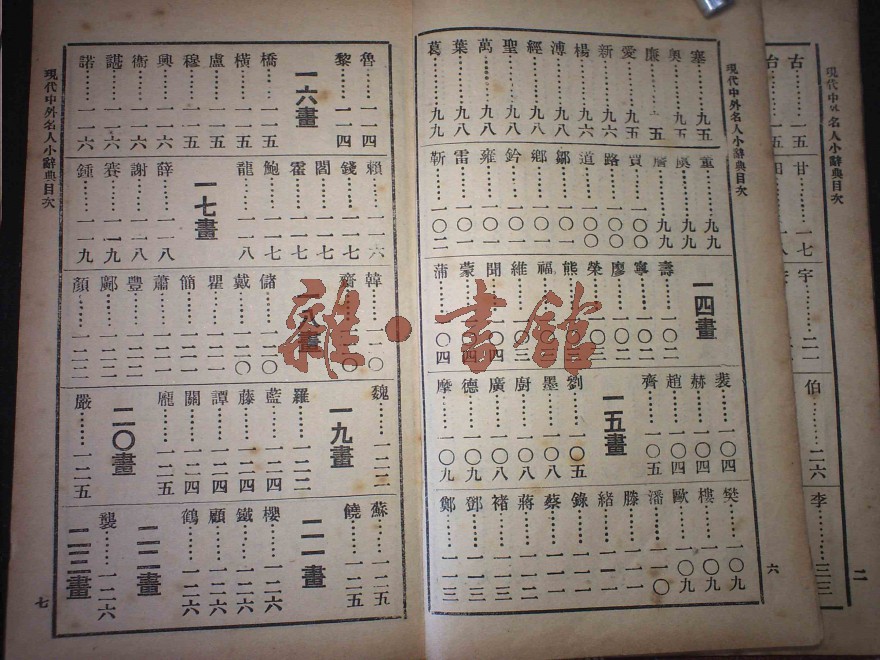 現代中外名人小辭典目次
古……一五
台……一五
甘……一七
宇……二一
伯……二六
李……三三
二
現代中外名人小辭典目次
塞……九五
奧……九五
廉……九五
愛……九五
新……九六
楊……九六
溥……九八
經……九八
聖……九八
萬……九八
葉……九八
葛……九九
董……九九
虞……九九
詹……九九
賈……一〇〇
路……一〇〇
道……一〇〇
鄒……一〇一
鄉……一〇一
鈐……一〇一
雍……一〇一
雷……一〇一
靳……一〇二
一四畫
壽……一〇二
寧……一〇二
廖……一〇二
榮……一〇三
熊……一〇三
福……一〇三
維……一〇三
聞……一〇四
蒙……一〇四
蒲……一〇四
裴……一〇四
赫……一〇四
趙……一〇四
齊……一〇五
一五畫
劉……一〇五
墨……一〇八
廚……一〇八
廣……一〇八
德……一〇九
摩……一〇九
樊……一〇九
樓……一〇九
歐……一〇九
潘……一一〇
滕……一一一
緒……一一一
錄……一一一
蔡……一一一
蔣……一一二
褚……一一三
鄧……一一三
鄭……一一三
六
魯……一一四
黎……一一四
一六畫
橋……一一五
橫……一一五
盧……一一五
穆……一一五
興……一一六
衞……一一六
諶……一一六
諾……一一六
賴……一一六
錢……一一七
閻……一一七
霍……一一七
鮑……一一七
龍……一一八
一七畫
薛……一一八
謝……一一八
賽……一一九
鍾……一一九
韓……一二〇
齋……一二〇
一八畫
儲……一二〇
戴……一二〇
瞿……一二一
簡……一二一
蕭……一二一
豐……一二二
鄺……一二二
顏……一二二
魏……一二二
一九畫
羅……一二二
藍……一二四
藤……一二四
譚……一二四
關……一二四
龐……一二五
二〇畫
嚴……一二五
蘇……一二五
饒……一二五
二一畫
櫻……一二六
鐵……一二六
顧……一二六
鶴……一二六
二二畫
龔……一二六
二三畫
現代中外名人小辭典目次
七
雜·書館